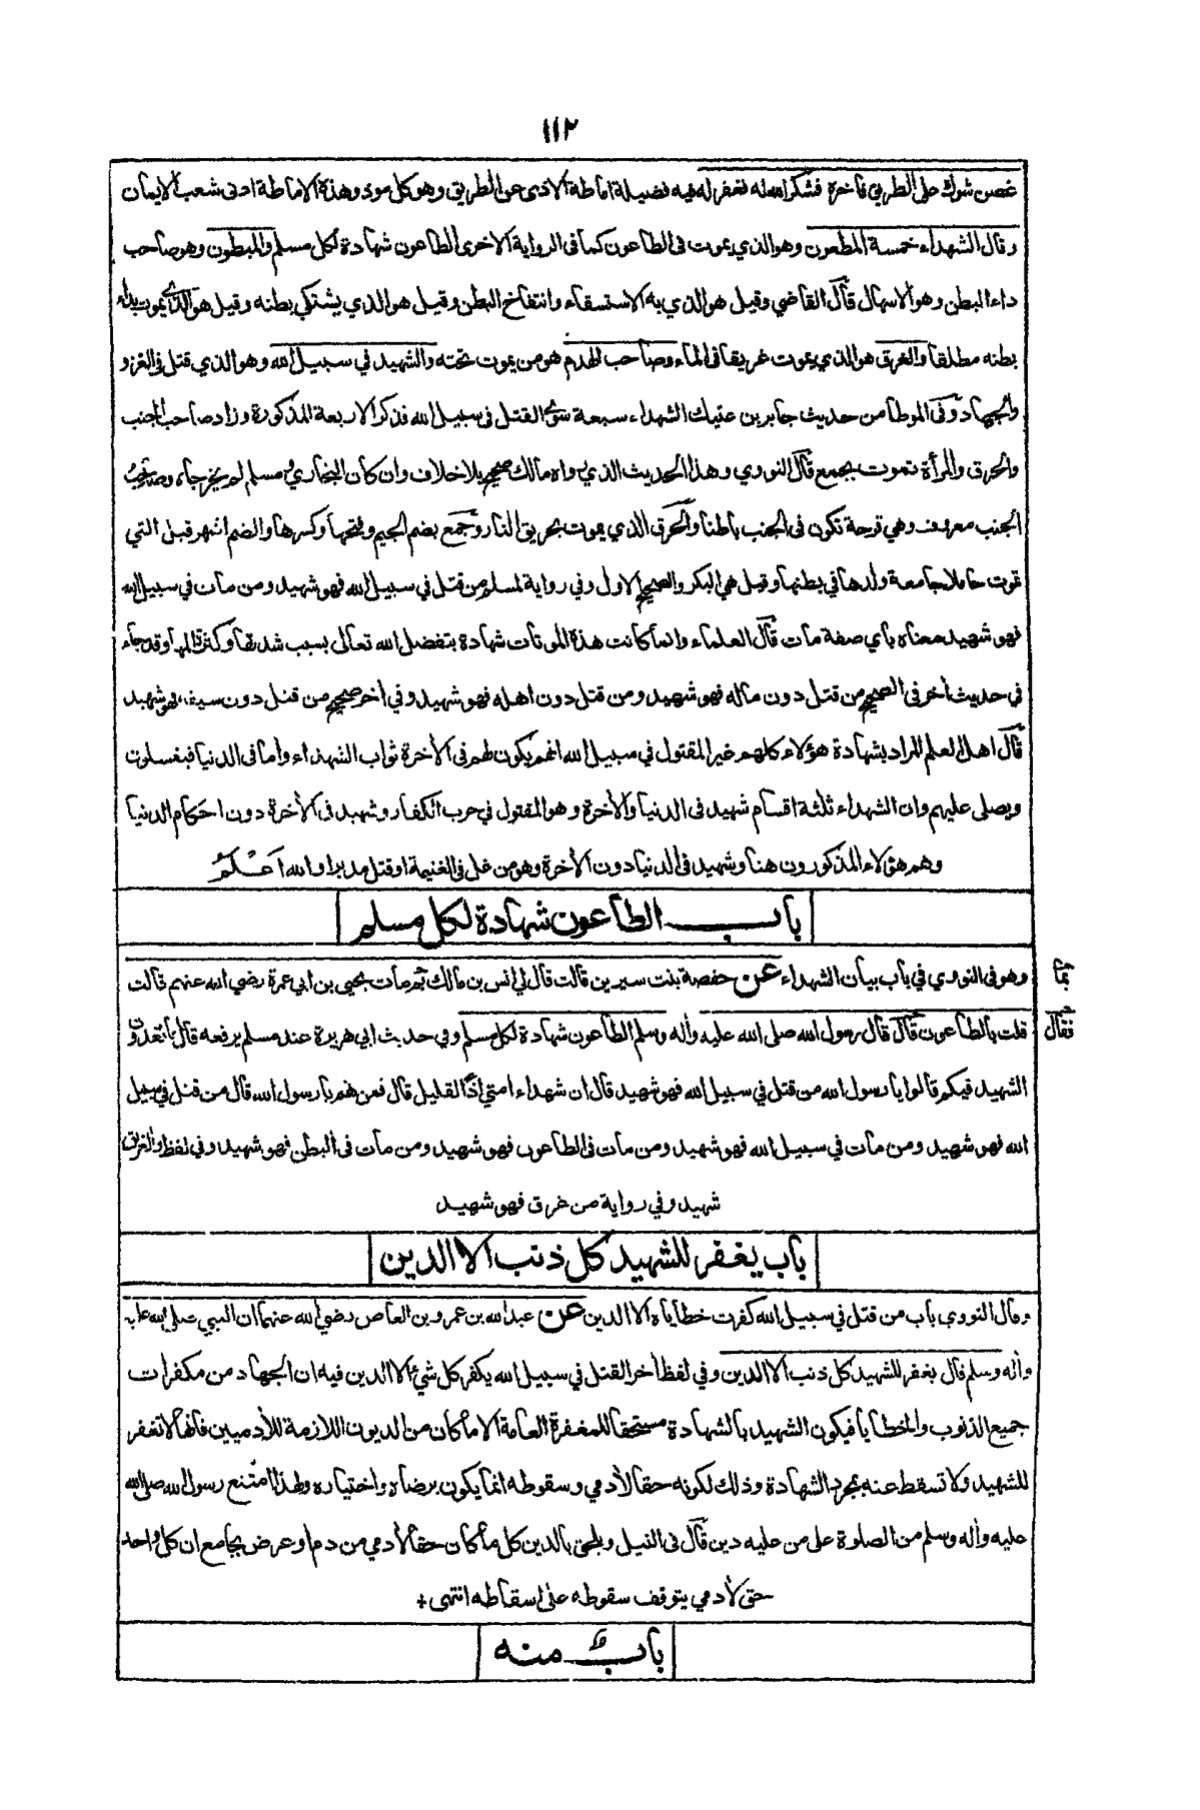 ١١٢
غصن شوك على الطريق فاخره فشكر الله له فغفر له فيه فضيلة اماطة الاذى عن الطريق وهو كل موذ وهذه الاماطة ادنى شعب الايمان
وقال الشهداء خمسة المطعون وهو الذي يموت فى الطاعون كما فى الرواية الاخرى الطاعون شهادة لكل مسلم والمبطون وهو صاحب
داء البطن وهو الاسهال قال القاضي وقيل هو الذي به الاستسقاء وانتفاخ البطن وقيل هو الذي يشتكي بطنه وقيل هو الذي يموت بداء
بطنه مطلقا والغرق هو الذي يموت غريقا فى الماء وصاحب الهدم هو من يموت تحته والشهيد في سبيل الله وهو الذي قتل فى الغزو
والجهاد وفى الموطا من حديث جابر بن عتيك الشهداء سبعة سوى القتل فى سبيل الله فذكر الاربعة المذكورة وزاد صاحب الجنب
والحرق والمرأة تموت بجمع قال النووي وهذا الحديث الذي رواه مالك صحيح بلا خلاف وان كان البخاري ومسلم لم يخرجاه وصاحب
الجنب معروف وهي قرحة تكون فى الجنب باطنا والحرق الذي يموت بحريق النار وجمع بضم الجيم وفتحها وكسرها والضم اشهر قيل التي
تموت حاملا جامعة ولدها في بطنها وقيل هي البكر والصحيح الاول وفي رواية لمسلم من قتل في سبيل الله فهو شهيد ومن مات في سبيل الله
فهو شهيد معناه باي صفة مات قال العلماء وانما كانت هذه الموتات شهادة بتفضل الله تعالى بسبب شدتها وكثرة المها وقد جاء
في حديث أخر فى الصحيح من قتل دون ماله فهو شهيد ومن قتل دون اهله فهو شهيد وفي اخر صحيح من قتل دون سيفه فهو شهيد
قال اهل العلم المراد بشهادة هؤلاء كلهم غير المقتول في سبيل الله انهم يكون لهم فى الأخرة ثواب الشهداء واما فى الدنيا فيغسلون
ويصلى عليهم وان الشهداء ثلثة اقسام شهيد فى الدنيا والأخرة وهو المقتول في حرب الكفار وشهيد فى الأخرة دون احكام الدنيا
وهم هؤلاء المذكورون هنا وشهيد فى الدنيا دون الأخرة وهو من غل فى الغنيمة او قتل مدبرا والله اعلم
باب الطاعون شهادة لكل مسلم
وهو فى النووي في باب بيان الشهداء عن حفصة بنت سيرين قالت قال لي انس بن مالك بم مات يحيى بن ابي عمرة رضي الله عنهم قالت
بما
قلت بالطاعون قال قال رسول الله صلى الله عليه وأله وسلم الطاعون شهادة لكل مسلم وفي حديث ابي هريرة عند مسلم يرفعه قال ما تعدون
فقال
الشهيد فيكم قالوا يا رسول الله من قتل في سبيل الله فهو شهيد قال ان شهداء امتي اذًا لقليل قال فمن هم يا رسول الله قال من قتل في سبيل
الله فهو شهيد ومن مات في سبيل الله فهو شهيد ومن مات فى الطاعون فهو شهيد ومن مات فى البطن فهو شهيد وفي لفظ والغريق
شهيد وفي رواية من غرق فهو شهيد
باب يغفر للشهيد كل ذنب الا الدين
وقال النووي باب من قتل في سبيل الله كفرت خطاياه الا الدين عن عبد الله بن عمرو بن العاص رضي الله عنهما ان النبي صلى الله عليه
وأله وسلم قال يغفر للشهيد كل ذنب الا الدين وفي لفظ أخر القتل في سبيل الله يكفر كل شئ الا الدين فيه ان الجهاد من مكفرات
جميع الذنوب والخطايا فيكون الشهيد بالشهادة مستحقا للمغفرة العامة الا ما كان من الديون اللازمة للأدميين فانها لا تغفر
للشهيد ولا تسقط عنه بمجرد الشهادة وذلك لكونه حقا لأدمي وسقوطه انما يكون برضاه واختياره ولهذا امتنع رسول الله صلى الله
عليه وأله وسلم من الصلوة على من عليه دين قال فى النيل ويلحق بالدين كل ما كان حقا لأدمي من دم او عرض بجامع ان كل واحد
حق لأدمي يتوقف سقوطه على اسقاطه انتهى +
باب منه